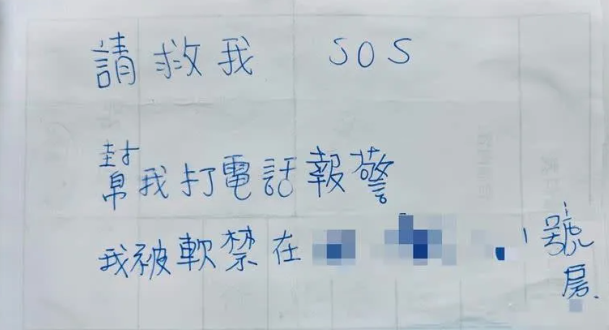 請救我 SOS
幫我打電話報警
我被軟禁在 號房